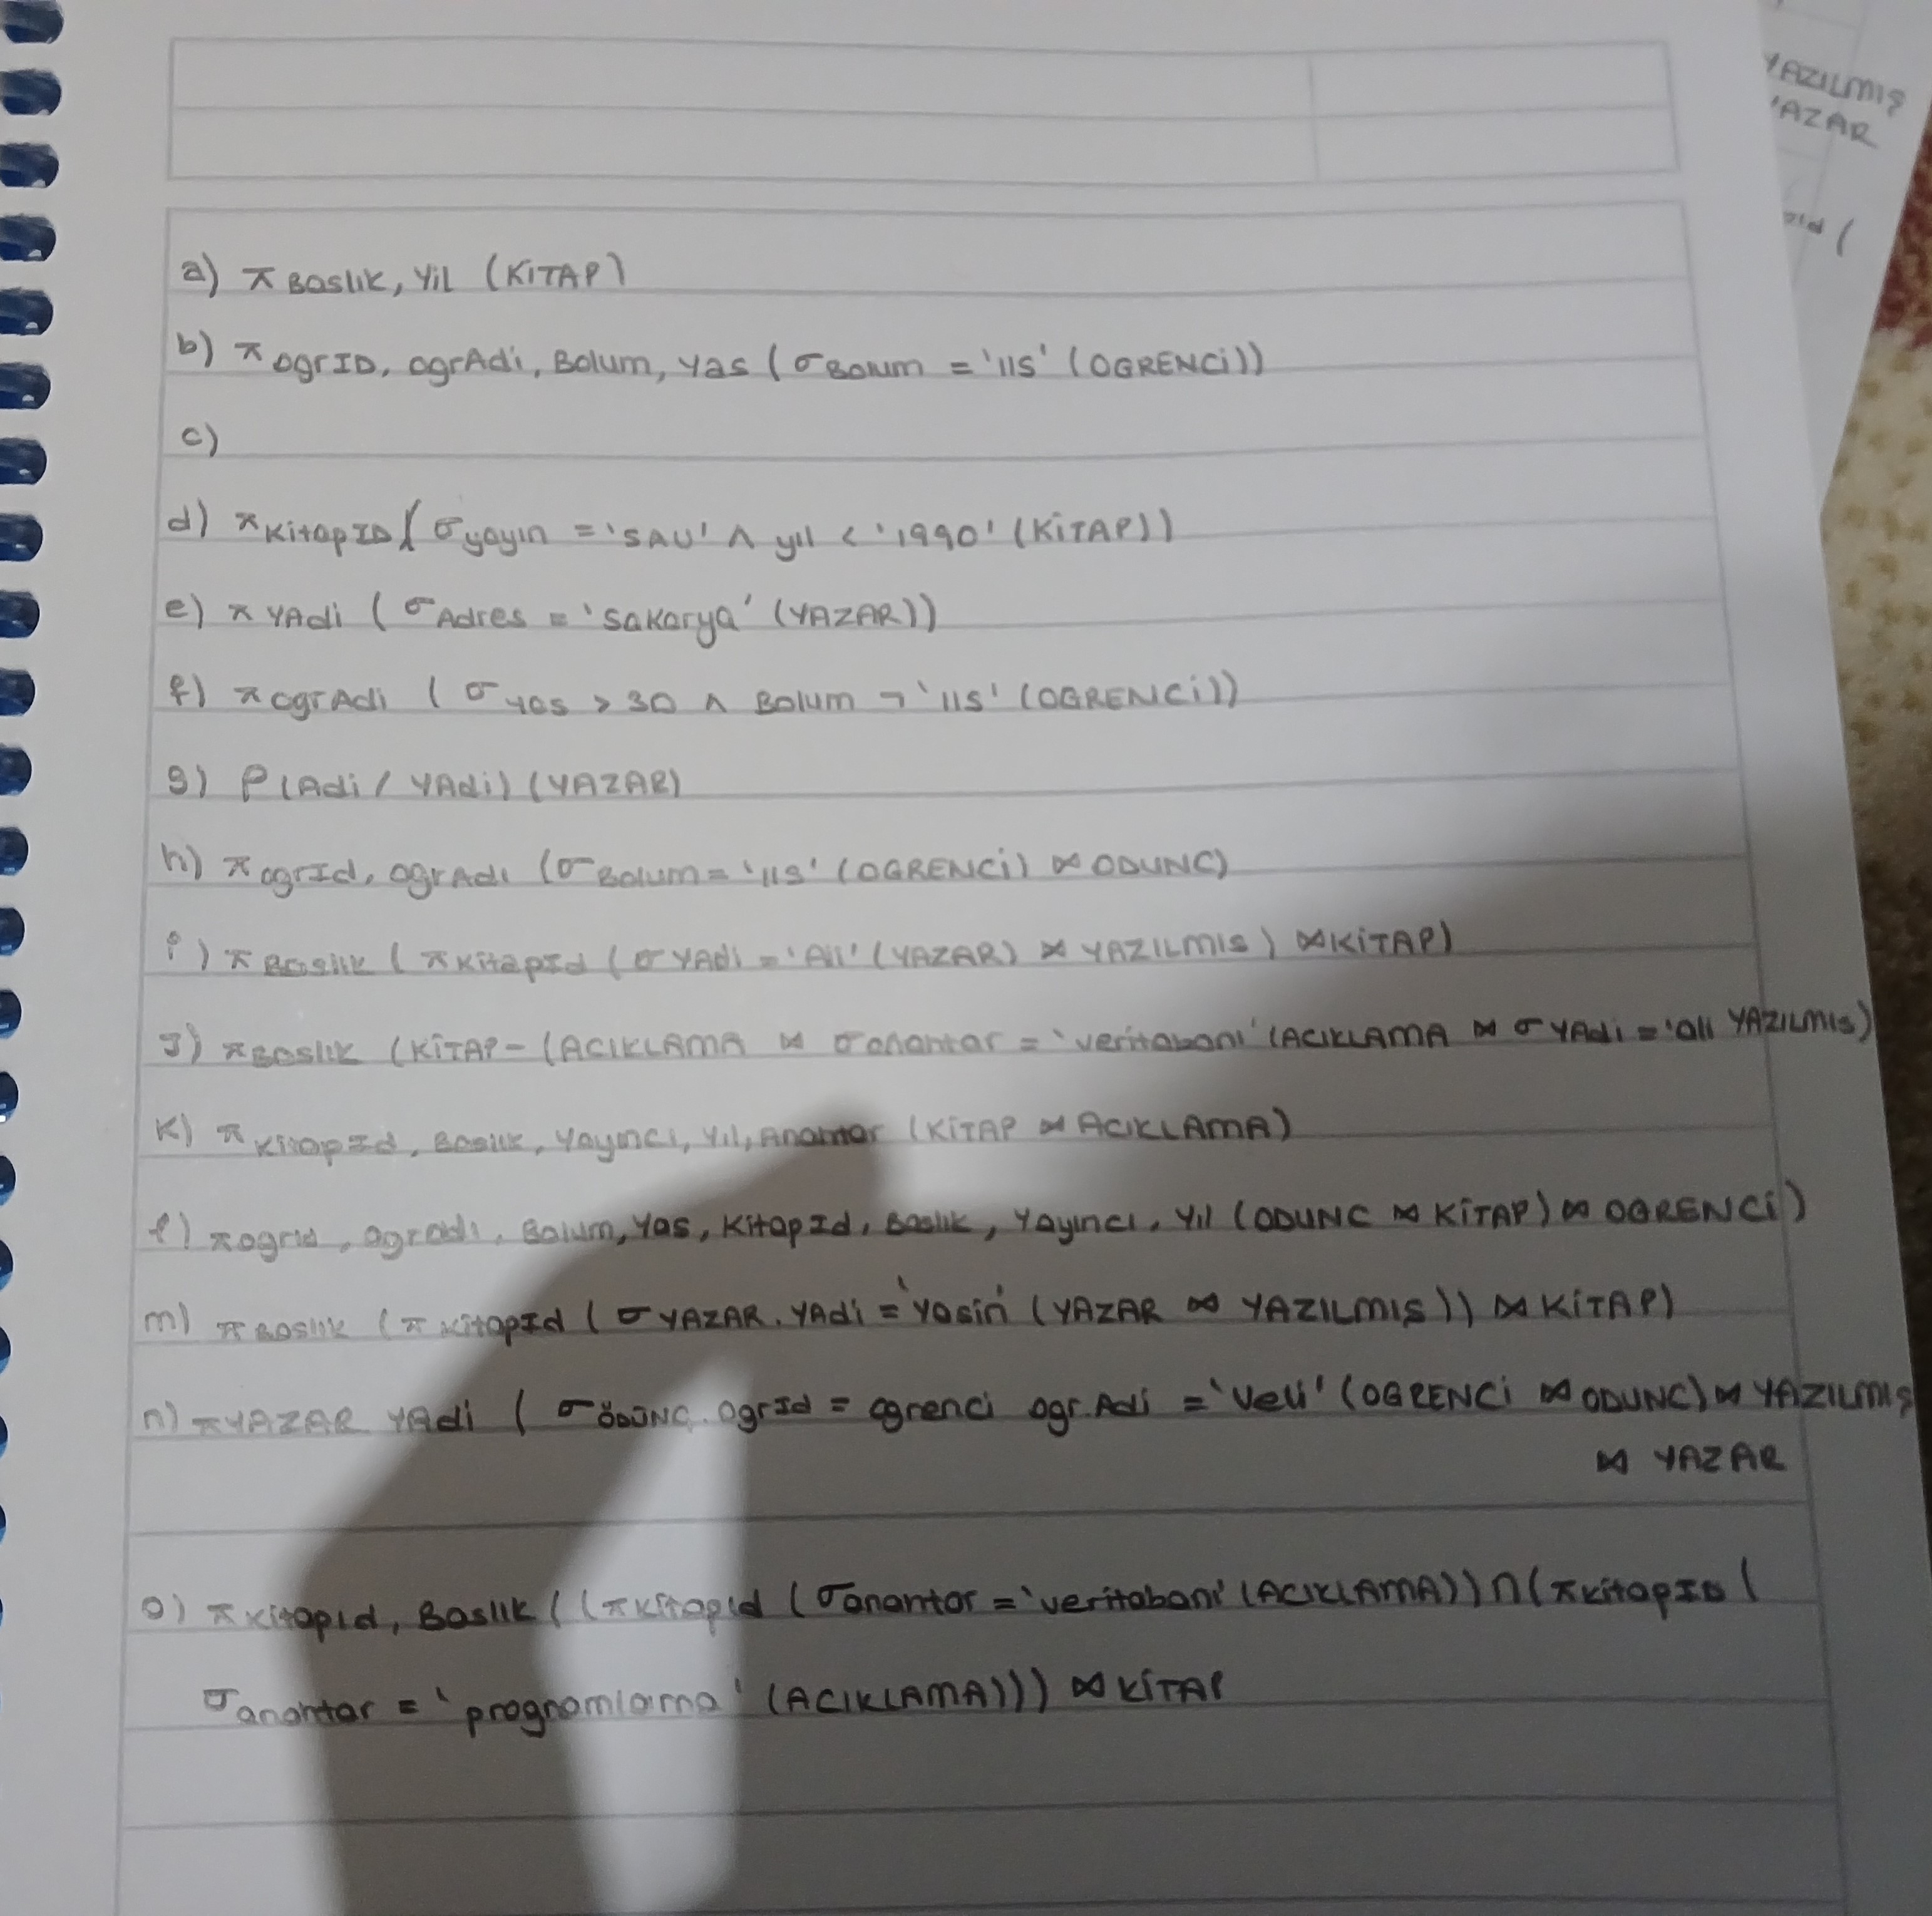 YAZILMIŞ
YAZAR
a) π Baslık, Yil (KİTAP)
b) π OgrID, OgrAdi, Bolum, Yas (σ Bolum = '115' (OGRENCİ))
c)
d) π KitapID (σ yayın = 'SAU' ∧ yıl < '1990' (KİTAP))
e) π YAdi (σ Adres = 'Sakarya' (YAZAR))
f) π OgrAdi (σ Yas > 30 ∧ Bolum ¬ '115' (OGRENCİ))
g) ρ (Adi / YAdi) (YAZAR)
h) π ogrId, ogrAdi (σ Bolum = '115' (OGRENCİ) ⋈ ODUNC)
i) π Baslık (π KitapId (σ YAdi = 'Ali' (YAZAR) ⋈ YAZILMIS) ⋈ KİTAP)
J) π Baslık (KİTAP - (ACIKLAMA ⋈ σ anahtar = 'veritabanı' (ACIKLAMA ⋈ σ YAdi = 'ali YAZILMIS)
K) π KitapId, Baslık, Yayıncı, Yıl, Anahtar (KİTAP ⋈ ACIKLAMA)
l) π ogrId, ogrAdi, Bolum, Yas, KitapId, Baslık, Yayıncı, Yıl (ODUNC ⋈ KİTAP) ⋈ OGRENCİ)
m) π Baslık (π KitapId (σ YAZAR.YAdi = 'Yasin' (YAZAR ⋈ YAZILMIŞ)) ⋈ KİTAP)
n) π YAZAR YAdi (σ ÖDÜNÇ.OgrId = ogrenci ogr.Adi = 'Veli' (OGRENCİ ⋈ ODUNC) ⋈ YAZILMIŞ
⋈ YAZAR
o) π KitapId, Baslık ((π Kitapıd (σ anahtar = 'veritabanı' (ACIKLAMA)) ∩ (π KitapID (
σ anahtar = 'programlama' (ACIKLAMA))) ⋈ KİTAP